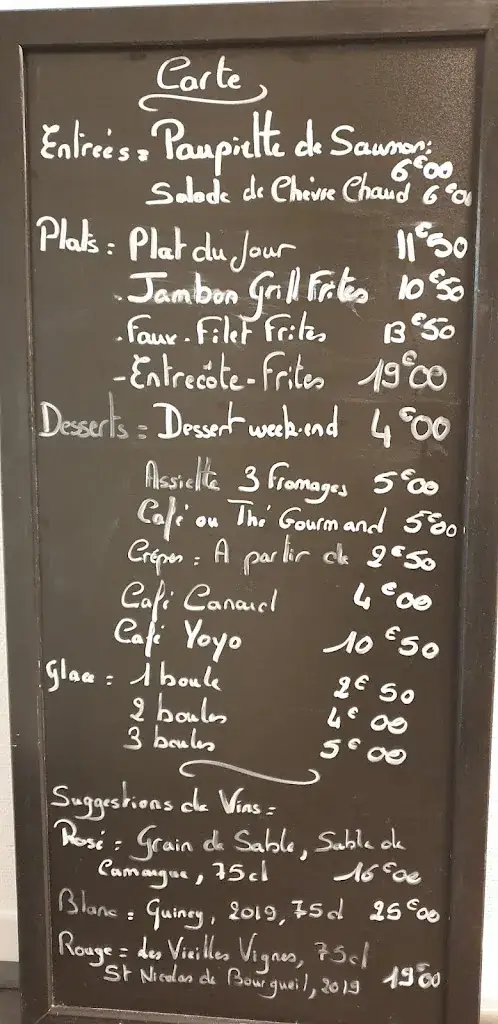 Carte
Entrées = Paupiette de Saumon : 6€00
Salade de Chèvre Chaud 6€00
Plats : Plat du Jour 11€50
. Jambon Grill Frites 10€50
. Faux-Filet Frites 13€50
- Entrecôte-Frites 19€00
Desserts = Dessert week-end 4€00
Assiette 3 Fromages 5€00
Café ou Thé Gourmand 5€00
Crêpes : A partir de 2€50
Café Canard 4€00
Café Yoyo 10€50
Glace = 1 boule 2€50
2 boules 4€00
3 boules 5€00
Suggestions de Vins =
Rosé : Grain de Sable, Sable de
Camargue, 75cl 16€00
Blanc = Quincy, 2019, 75cl 25€00
Rouge = des Vieilles Vignes, 75cl
St Nicolas de Bourgueil, 2019 19€00